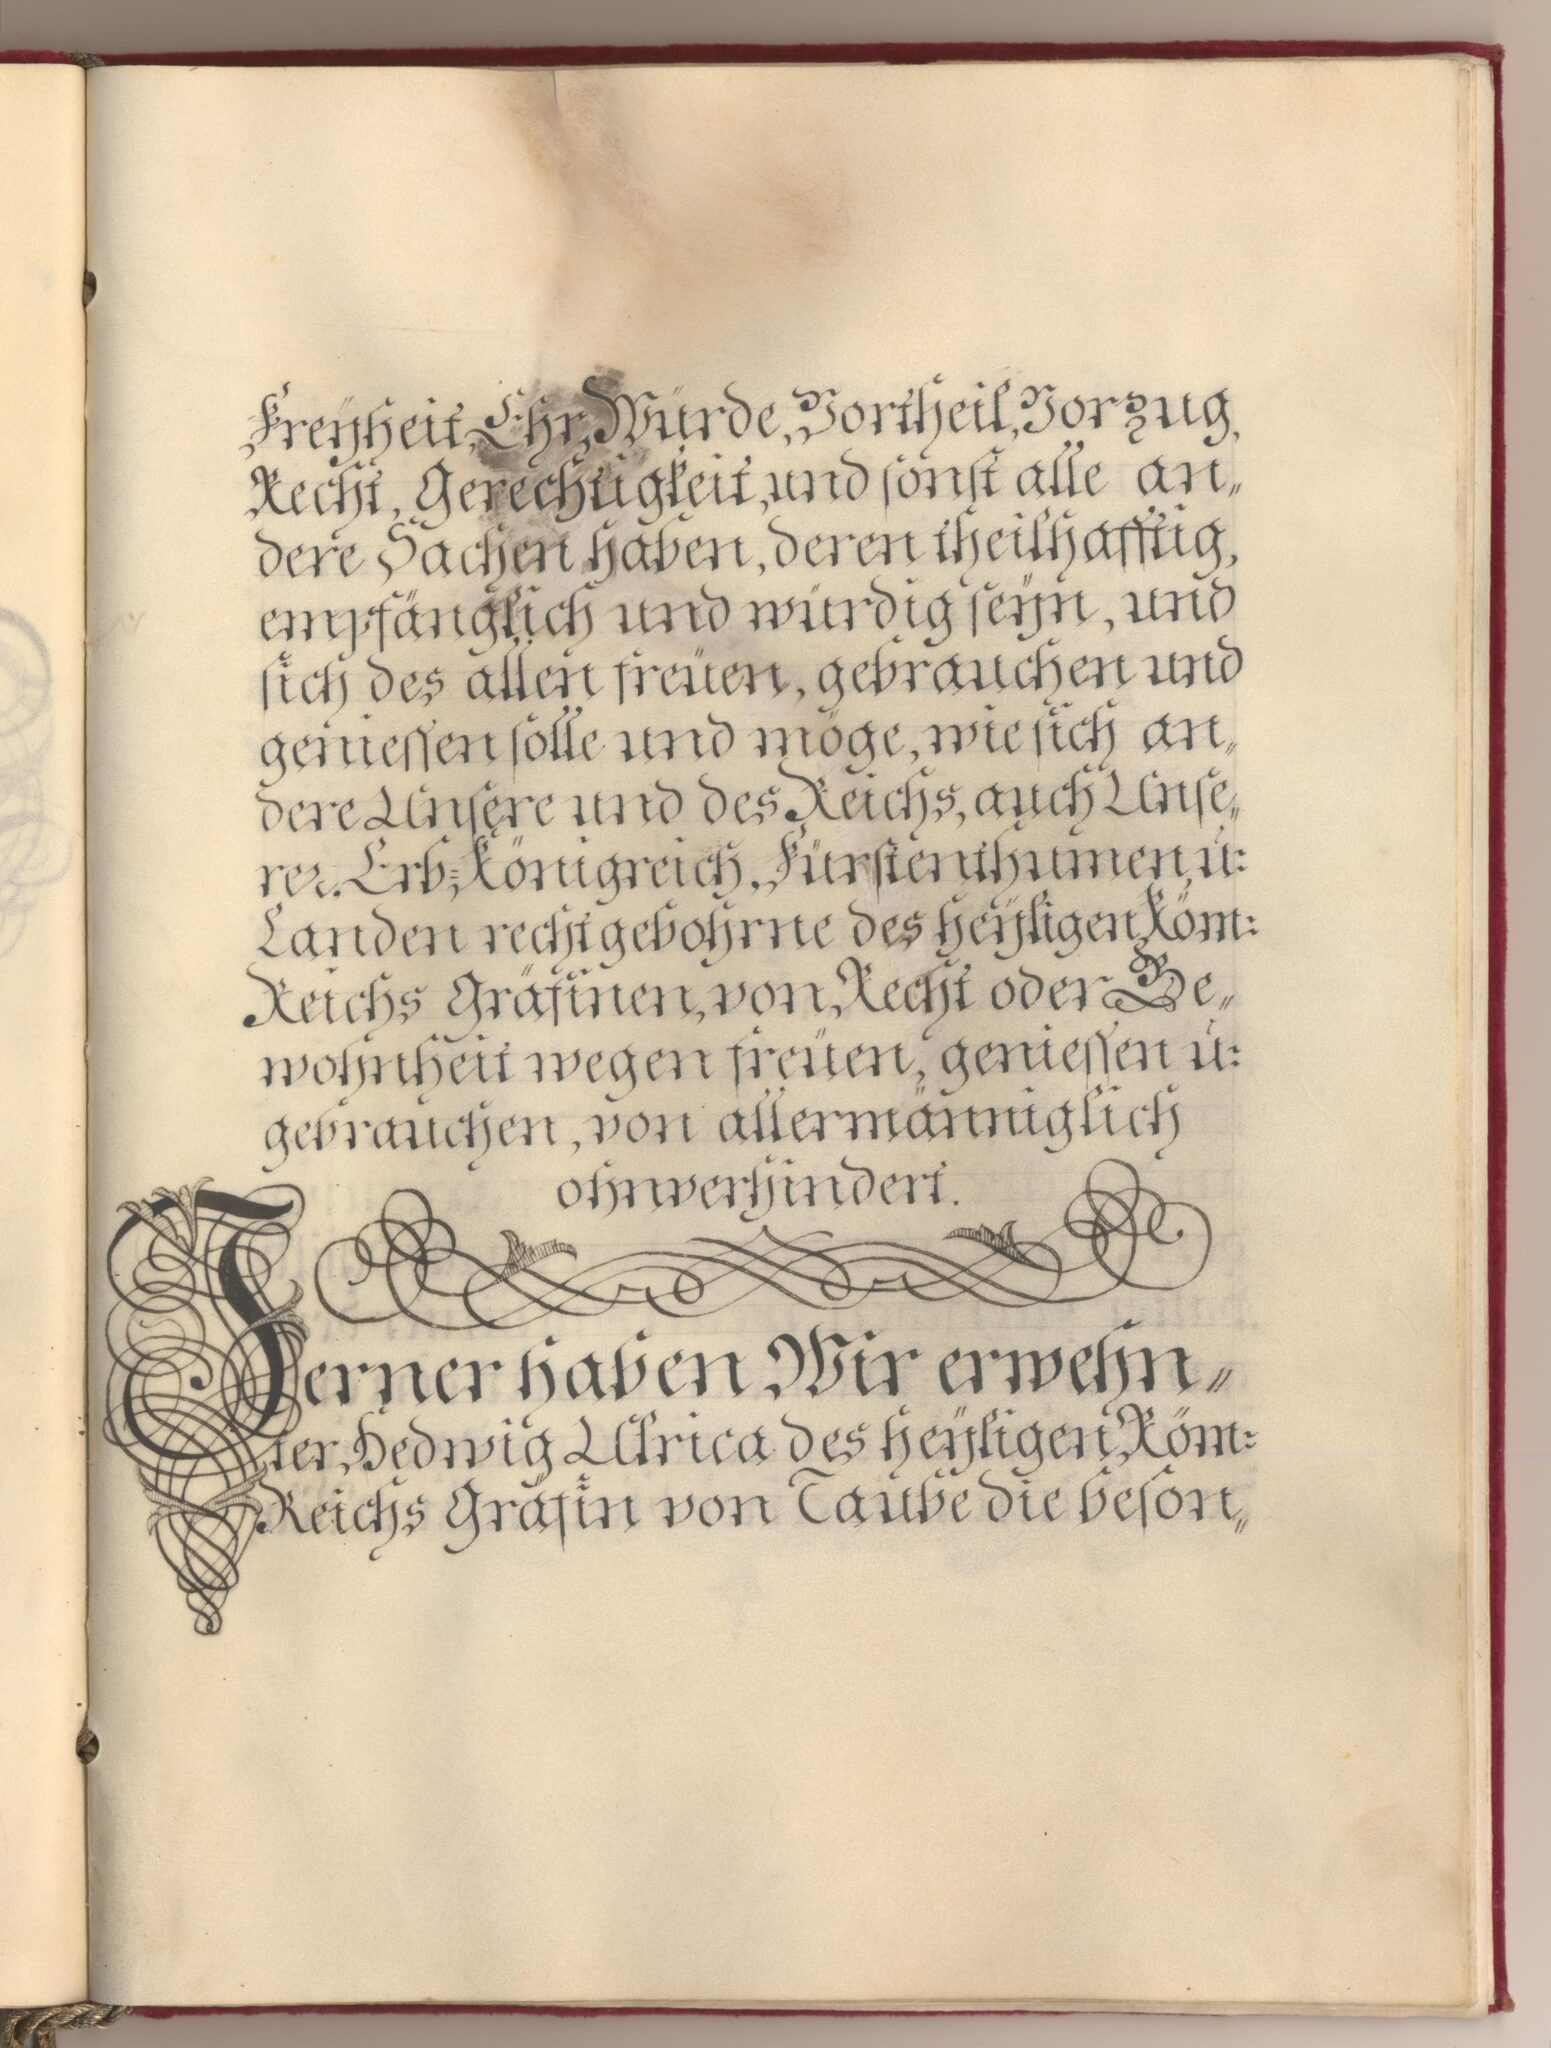 Freÿheit, Ehr, Würde, Vortheil, Vorzug,
Recht, Gerechtigkeit, und sonst alle an„
dere Sachen haben, deren theilhafftig,
empfänglich und würdig seÿn, und
sich des allen freüen, gebrauchen und
geniessen solle und möge, wie sich an„
dere Unsere und des Reichs, auch Unse„
rer Erb-Königreich, Fürstenthumen, u:
Landen rechtgebohrne des heÿligen Röm:
Reichs Gräfinen, von Recht oder Ge„
wohnheit wegen freüen, geniessen u:
gebrauchen, von allermänniglich
ohnverhindert.
Ferner haben Wir erwehn„
ter Hedwig Ulrica des heÿligen Röm:
Reichs Gräfin von Taube die beson„